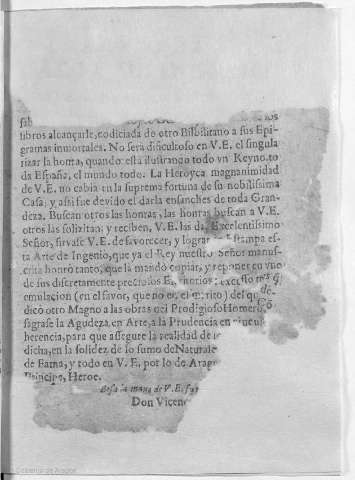 fab los
libros alcançarle, codiciada de otro Bilbilitano a sus Epi-
gramas inmortales. No serà dificultoso en V.E. el singula
rizar la honra, quando està ilustrando todo vn Reyno, to
da España, el mundo todo. La Heroyca magnanimidad
de V.E. no cabia en la suprema fortuna de su nobilissima
Casa, y assi fue devido el darla ensanches de toda Gran-
deza. Buscan otros las honras, las honras buscan a V.E.
otros las solizitan, y reciben, V.E. las dà, Excelentissimo
Señor, sirvase V.E. de favorecer, y lograr estampa es-
ta Arte de Ingenio, que ya el Rey nuestro Señor manus-
crita honrò tanto, que la mandò copiar, y reponer en vno
de sus discretamente preciosos
emulacion (en el favor, que no en el merito) del que de-
dicò otro Magno a las obras del Prodigioso Homero, Cō
sagrase la Agudeza en Arte, a la Prudencia en
herencia, para que assegure la realidad de
dicha, en la solidez de lo sumo de Naturale
de Fama, y todo en V.E. por lo de Arago
Principe, Heroe.
Besa la mano de V.E. su
Don Vicenc